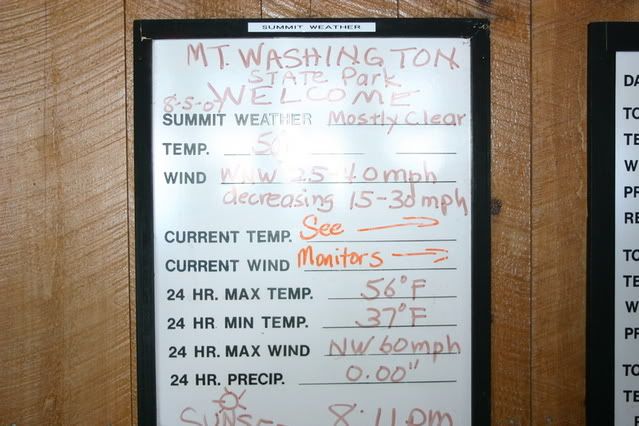 SUMMIT WEATHER
MT. WASHINGTON
STATE Park
WELCOME
SUMMIT WEATHER Mostly Clear
TEMP.
WIND WNW 25-40mph
decreasing 15-30mph
CURRENT TEMP. See →
CURRENT WIND Monitors →
24 HR. MAX TEMP. 56°F
24 HR. MIN TEMP. 37°F
24 HR. MAX WIND NW 60mph
24 HR. PRECIP. 0.00"
8:11pm
DA
TO
TE
W
PR
RE
TO
TE
W
PR
TO
TE